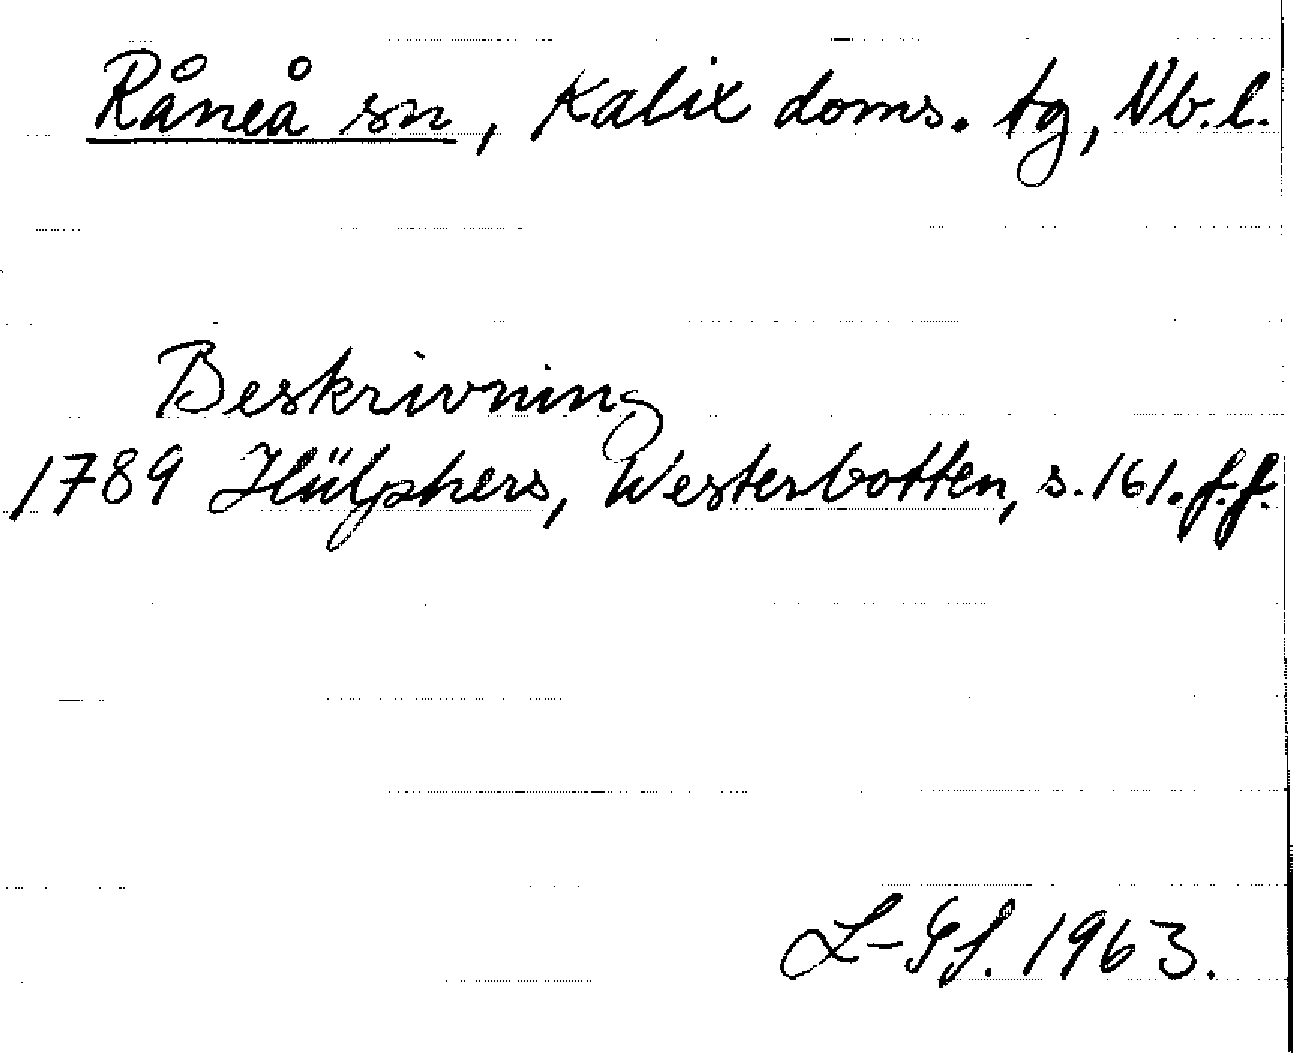 Råneå sn, Kalix doms. tg, Nb.l.
Beskrivning
1789 Hülphers, Westerbotten, s. 161. f.f.
1963.